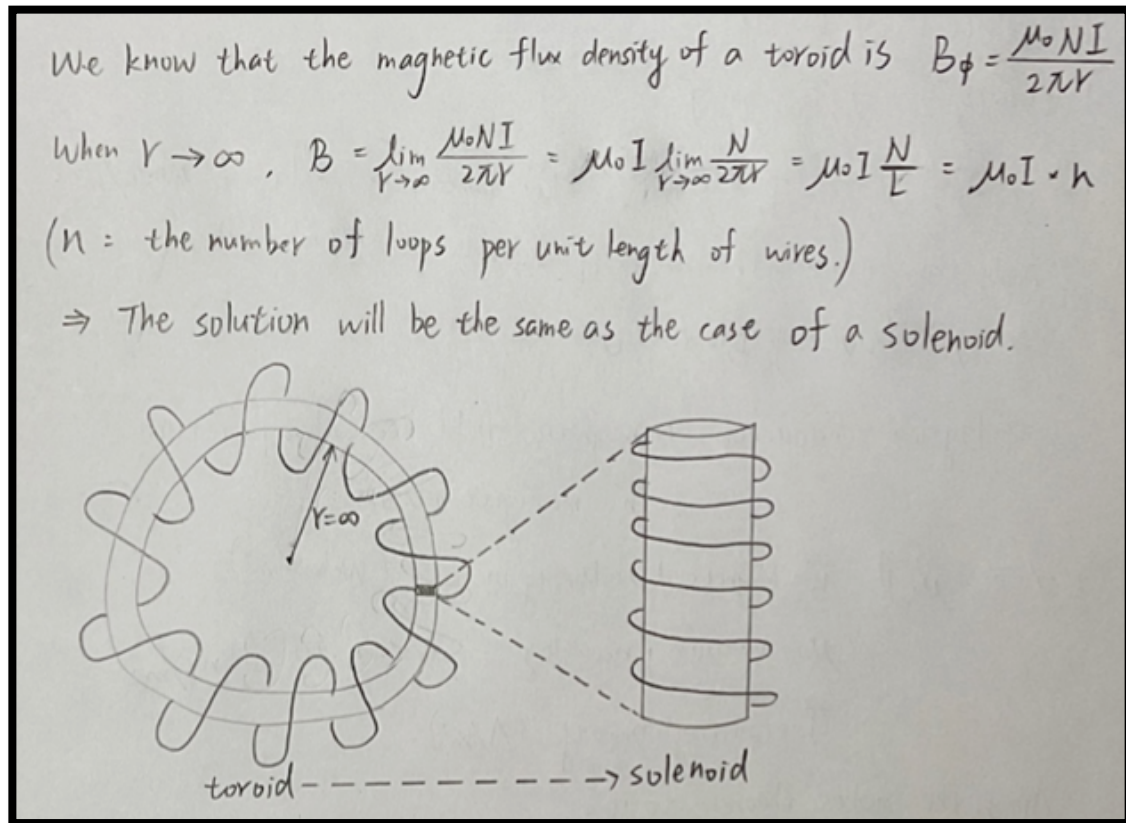 We know that the magnetic flux density of a toroid is B_ϕ = μ₀NI / 2πr
When r → ∞ , B = lim_{r→∞} μ₀NI / 2πr = μ₀I lim_{r→∞} N / 2πr = μ₀I N / L = μ₀I · n
(n : the number of loops per unit length of wires.)
⇒ The solution will be the same as the case of a solenoid.
r=∞
toroid -----------→ solenoid